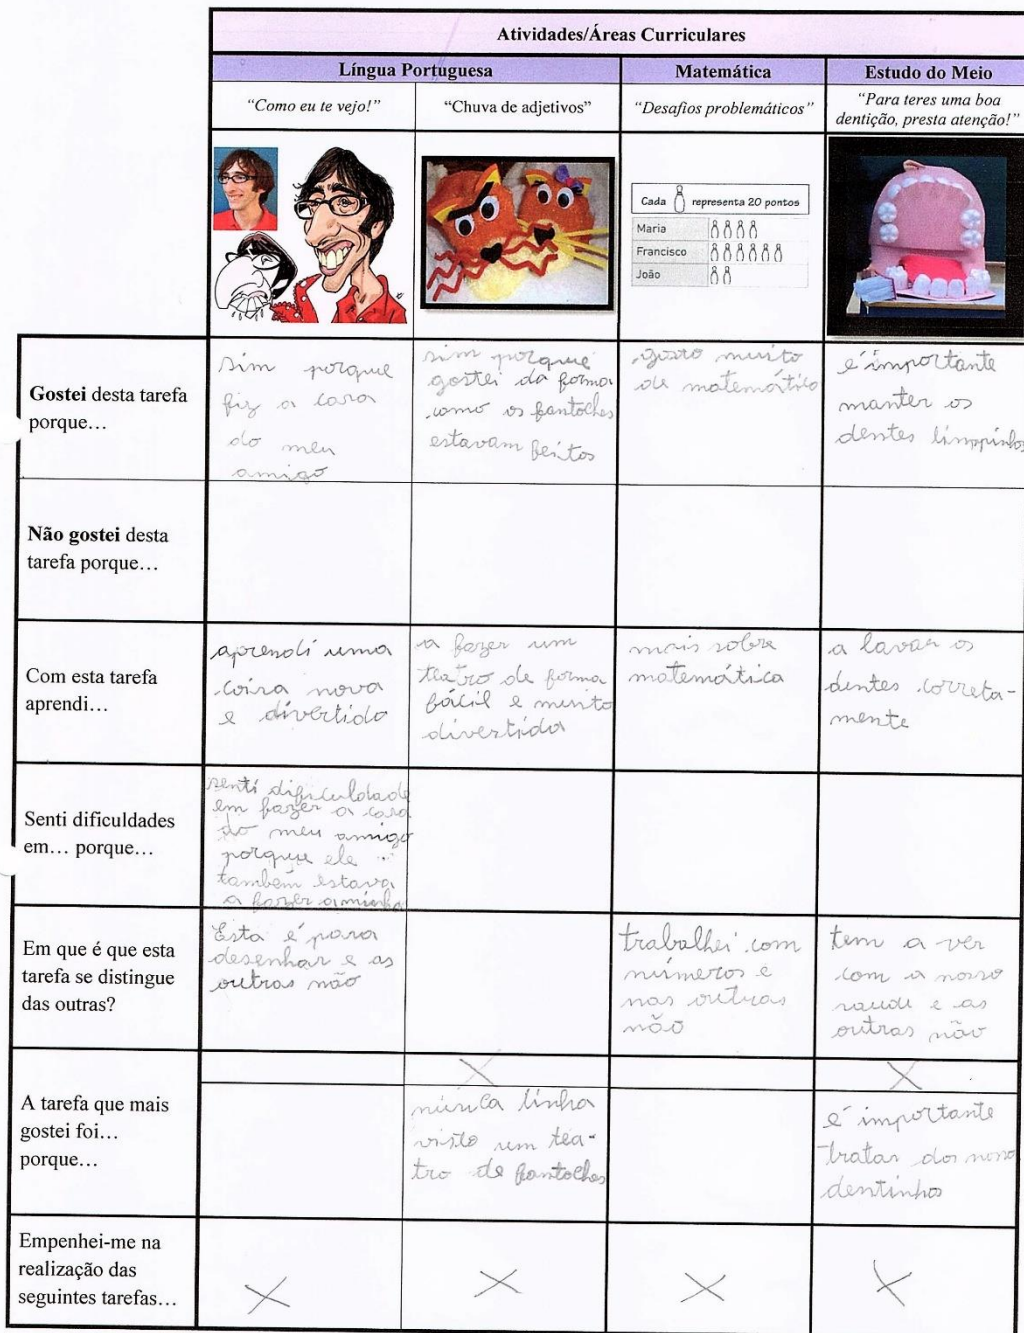 Atividades/Áreas Curriculares
Língua Portuguesa
Matemática
Estudo do Meio
"Como eu te vejo!"
"Chuva de adjetivos"
"Desafios problemáticos"
"Para teres uma boa
dentição, presta atenção!"
Cada representa 20 pontos
Maria
Francisco
João
Gostei desta tarefa
porque...
sim porque
fiz a cara
do meu
amigo
sim porque
gostei da forma
como os fantoches
estavam feitos
gosto muito
de matemática
é importante
manter os
dentes limppinhos
Não gostei desta
tarefa porque...
Com esta tarefa
aprendi...
aprendi uma
coisa nova
e divertido
a fazer um
teatro de forma
fácil e muito
divertida
mais sobre
matemática
a lavar os
dentes correta-
mente
Senti dificuldades
em... porque...
senti dificuldade
em fazer a cara
do meu amigo
porque ele
também estava
a fazer a minha
Em que é que esta
tarefa se distingue
das outras?
Esta é para
desenhar e as
outras não
trabalhei com
números e
nas outras
não
tem a ver
com a nossa
saude e as
outras não
A tarefa que mais
gostei foi...
porque...
X
núnca tinha
visto um tea-
tro de fantoches
X
é importante
tratar dos nosso
dentinhos
Empenhei-me na
realização das
seguintes tarefas...
X
X
X
X